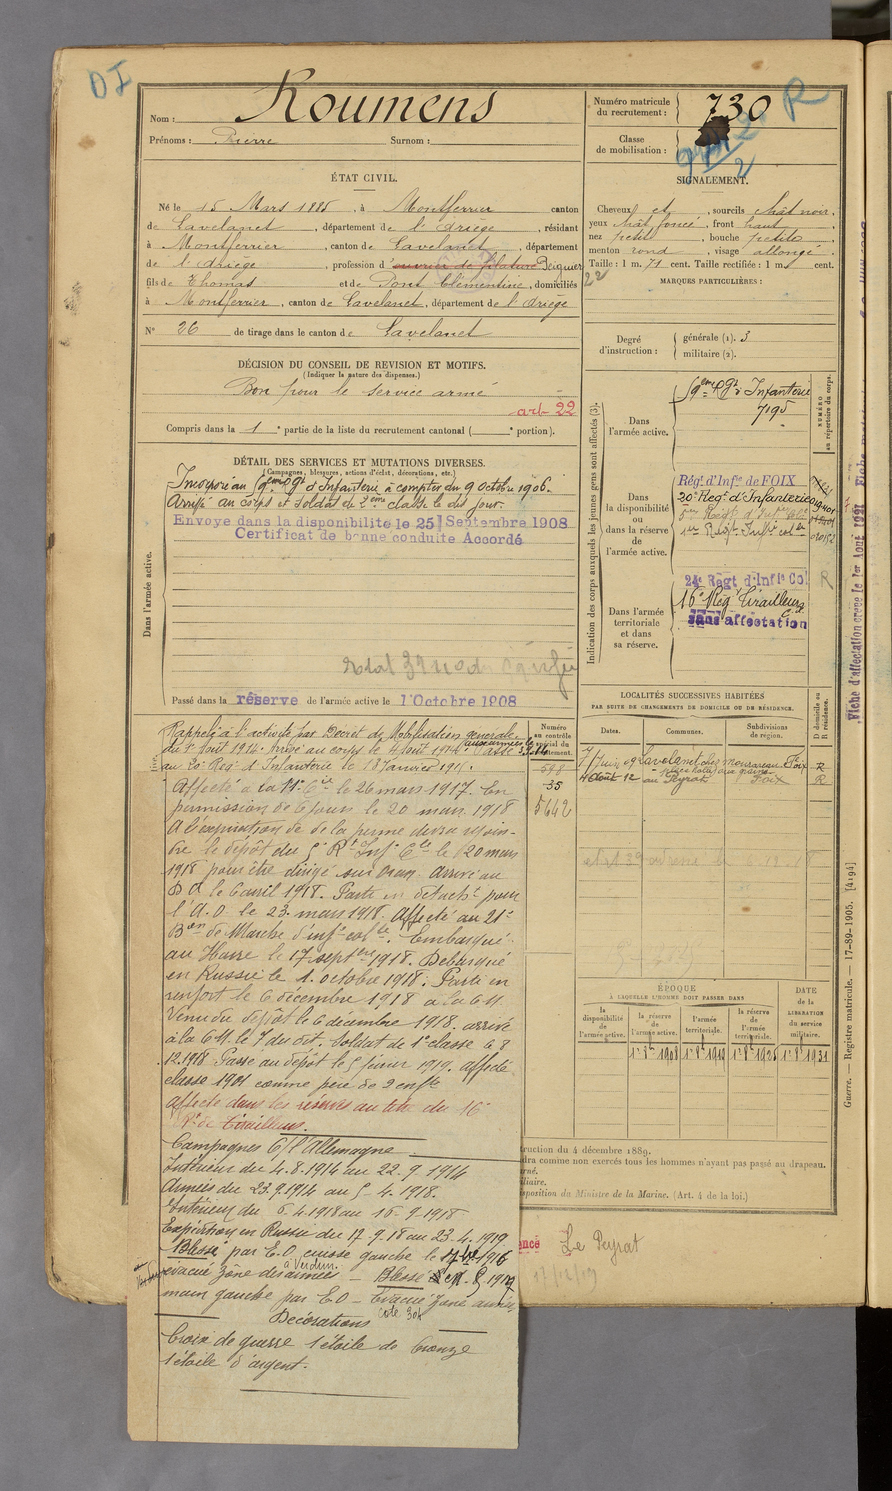 DI
Nom : Roumens
Prénoms : Pierre Surnom :
Numéro matricule
du recrutement : 730
R
Classe
de mobilisation :
ÉTAT CIVIL.
Né le 15 Mars 1885, à Montferrier canton
de Lavelanet, département de l'Ariège, résidant
à Montferrier, canton de Lavelanet, département
de l'Ariège, profession d'ouvrier de filature Peigneur
fils de Thomas et de Pont Clémentine, domiciliés
à Montferrier, canton de Lavelanet, département de l'Ariège
N° 26 de tirage dans le canton de Lavelanet
SIGNALEMENT.
Cheveux et , sourcils chât noir,
yeux chât foncé, front haut,
nez petit, bouche petite,
menton rond, visage allongé.
Taille : 1 m. 71 cent. Taille rectifiée : 1 m. cent.
22
MARQUES PARTICULIÈRES :
Degré
d'instruction :
générale (1). 3
militaire (2).
DÉCISION DU CONSEIL DE REVISION ET MOTIFS.
(Indiquer la nature des dispenses.)
Bon pour le service armé
art 22
Compris dans la 1e partie de la liste du recrutement cantonal ( e portion).
DÉTAIL DES SERVICES ET MUTATIONS DIVERSES.
(Campagnes, blessures, actions d'éclat, décorations, etc.)
Incorporé au 9ème Rgt d'Infanterie à compter du 9 octobre 1906.
Arrivé au corps et soldat de 2ème classe le dit jour.
Envoyé dans la disponibilité le 25 Septembre 1908
Certificat de bonne conduite Accordé
Dans l'armée active.
Passé dans la réserve de l'armée active le 1 Octobre 1908
Indication des corps auxquels les jeunes gens sont affectés (3).
NUMÉRO
au répertoire du corps.
Dans
l'armée active.
9ème Rgt d'Infanterie
7195
Dans
la disponibilité
ou
dans la réserve
de
l'armée active.
Régt d'Infie de FOIX
20e Regt d'Infanterie
5me Régt d'Inft Cle
1er Régt Inft col le
Dans l'armée
territoriale
et dans
sa réserve.
24e Regt d'Infie Col
R
16e Rég Tirailleurs
sans affectation
LOCALITÉS SUCCESSIVES HABITÉES
PAR SUITE DE CHANGEMENTS DE DOMICILE OU DE RÉSIDENCE.
D domicile ou
R résidence.
Dates. Communes. Subdivisions
de région.
7 Juin 09 Lavelanet chez Foix R
4 Août 12 au Peyrat Foix R
Numéro
au contrôle
spécial du
recrutement.
598
35
5642
Rappelé à l'activité par Décret de Mobilisation générale
du 1er Août 1914. Arrivé au corps le 4 Août 1914
au 20e Reg d'Infanterie le 18 Janvier 1915.
Affecté à la 11e Cie le 26 mars 1917. En
permission de 6 jours le 20 mars 1918
A l'expiration de la perme devra rejoin-
dre le dépôt du 5e Rt Inf Cle le 20 mars
1918 pour être dirigé sur Oran. Arrivé au
D d le 6 avril 1918. Parti en détacht pour
l'A.O. le 23 mars 1918. Affecté au 21e
Bon de Marche d'inf colle. Embarqué
au Havre le 17 septbre 1918. Débarqué
en Russie le 1 octobre 1918. Parti en
renfort le 6 décembre 1918 à la 6 M.
Venu du dépôt le 6 décembre 1918. arrivé
à la 6 M. le 7 du dit. Soldat de 1e classe le 8
12.1918. Passé au dépôt le 5 février 1919. affecté
classe 1901 comme père de 2 enfts
Affecté dans les réserves au titre du 16e
Rt de Tirailleurs.
Campagnes C/ l'Allemagne
Intérieur du 4.8.1914 au 22.9.1914
Armées du 23.9.1914 au 5.4.1918.
Intérieur du 6.4.1918 au 16.9.1918
Expédition en Russie du 17.9.18 au 23.4.1919
Blessé par E.O. cuisse gauche le 1916
à Verdun.
évacué zône des armées — Blessé le 1917
main gauche par E.O — Evacué zône armées
cote 304
Décorations
Croix de guerre 1 étoile de bronze
1 étoile d'argent.
ÉPOQUE
À LAQUELLE L'HOMME DOIT PASSER DANS
la
disponibilité
de
l'armée active.
la réserve
de
l'armée active.
l'armée
territoriale.
la réserve
de
l'armée
territoriale.
DATE
de la
LIBÉRATION
du service
militaire.
1er 8bre 1908 1er 8bre 1919 1er 8bre 1925 1er 8bre 1931
ruction du 4 décembre 1889.
dra comme non exercés tous les hommes n'ayant pas passé au drapeau.
rné.
iliaire.
isposition du Ministre de la Marine. (Art. 4 de la loi.)
Le Peyrat
Guerre. — Registre matricule. — 17-89-1905. [4194]
Fiche d'affectation créée le 1er Août 1921